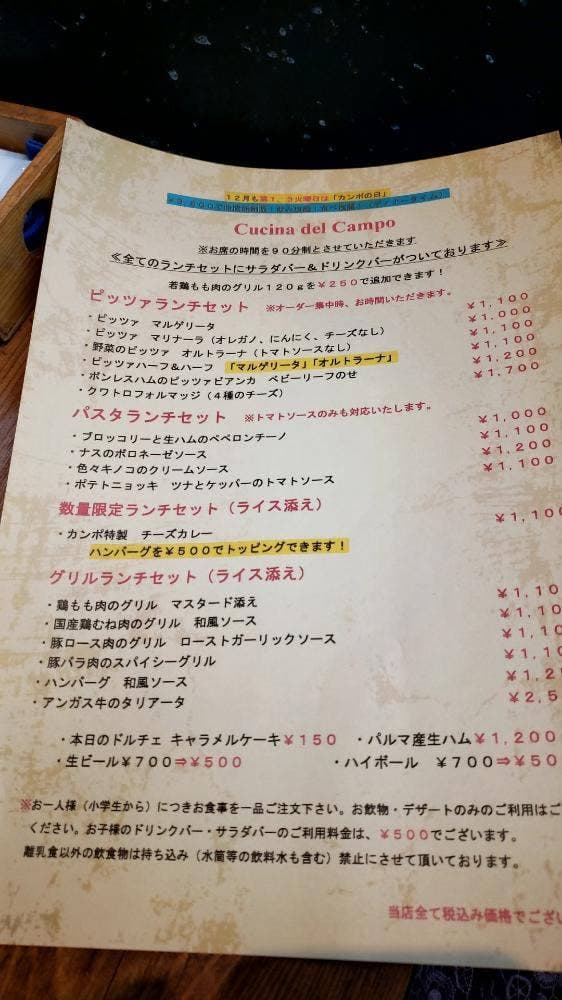 12月も第1、3火曜日は「カンポの日」
Cucina del Campo
※お席の時間を90分制とさせていただきます
≪全てのランチセットにサラダバー&ドリンクバーがついております≫
若鶏もも肉のグリル120gを¥250で追加できます!
ピッツァランチセット ※オーダー集中時、お時間いただきます。
・ピッツァ マルゲリータ ¥1,100
・ピッツァ マリナーラ(オレガノ、にんにく、チーズなし) ¥1,000
・野菜のピッツァ オルトラーナ(トマトソースなし) ¥1,100
・ピッツァハーフ&ハーフ 「マルゲリータ」「オルトラーナ」 ¥1,100
・ボンレスハムのピッツァビアンカ ベビーリーフのせ ¥1,200
・クワトロフォルマッジ(4種のチーズ) ¥1,700
パスタランチセット ※トマトソースのみも対応いたします。
・ブロッコリーと生ハムのペペロンチーノ ¥1,000
・ナスのボロネーゼソース ¥1,100
・色々キノコのクリームソース ¥1,200
・ポテトニョッキ ツナとケッパーのトマトソース ¥1,100
数量限定ランチセット(ライス添え)
・カンポ特製 チーズカレー ¥1,100
ハンバーグを¥500でトッピングできます!
グリルランチセット(ライス添え)
・鶏もも肉のグリル マスタード添え ¥1,10
・国産鶏むね肉のグリル 和風ソース ¥1,10
・豚ロース肉のグリル ローストガーリックソース ¥1,10
・豚バラ肉のスパイシーグリル ¥1,10
・ハンバーグ 和風ソース ¥1,2
・アンガス牛のタリアータ ¥2,5
・本日のドルチェ キャラメルケーキ¥150 ・パルマ産生ハム¥1,200
・生ビール¥700⇒¥500 ・ハイボール ¥700⇒¥50
※お一人様(小学生から)につきお食事を一品ご注文下さい。お飲物・デザートのみのご利用はご
ください。お子様のドリンクバー・サラダバーのご利用料金は、¥500でございます。
離乳食以外の飲食物は持ち込み(水筒等の飲料水も含む)禁止にさせて頂いております。
当店全て税込み価格でござい